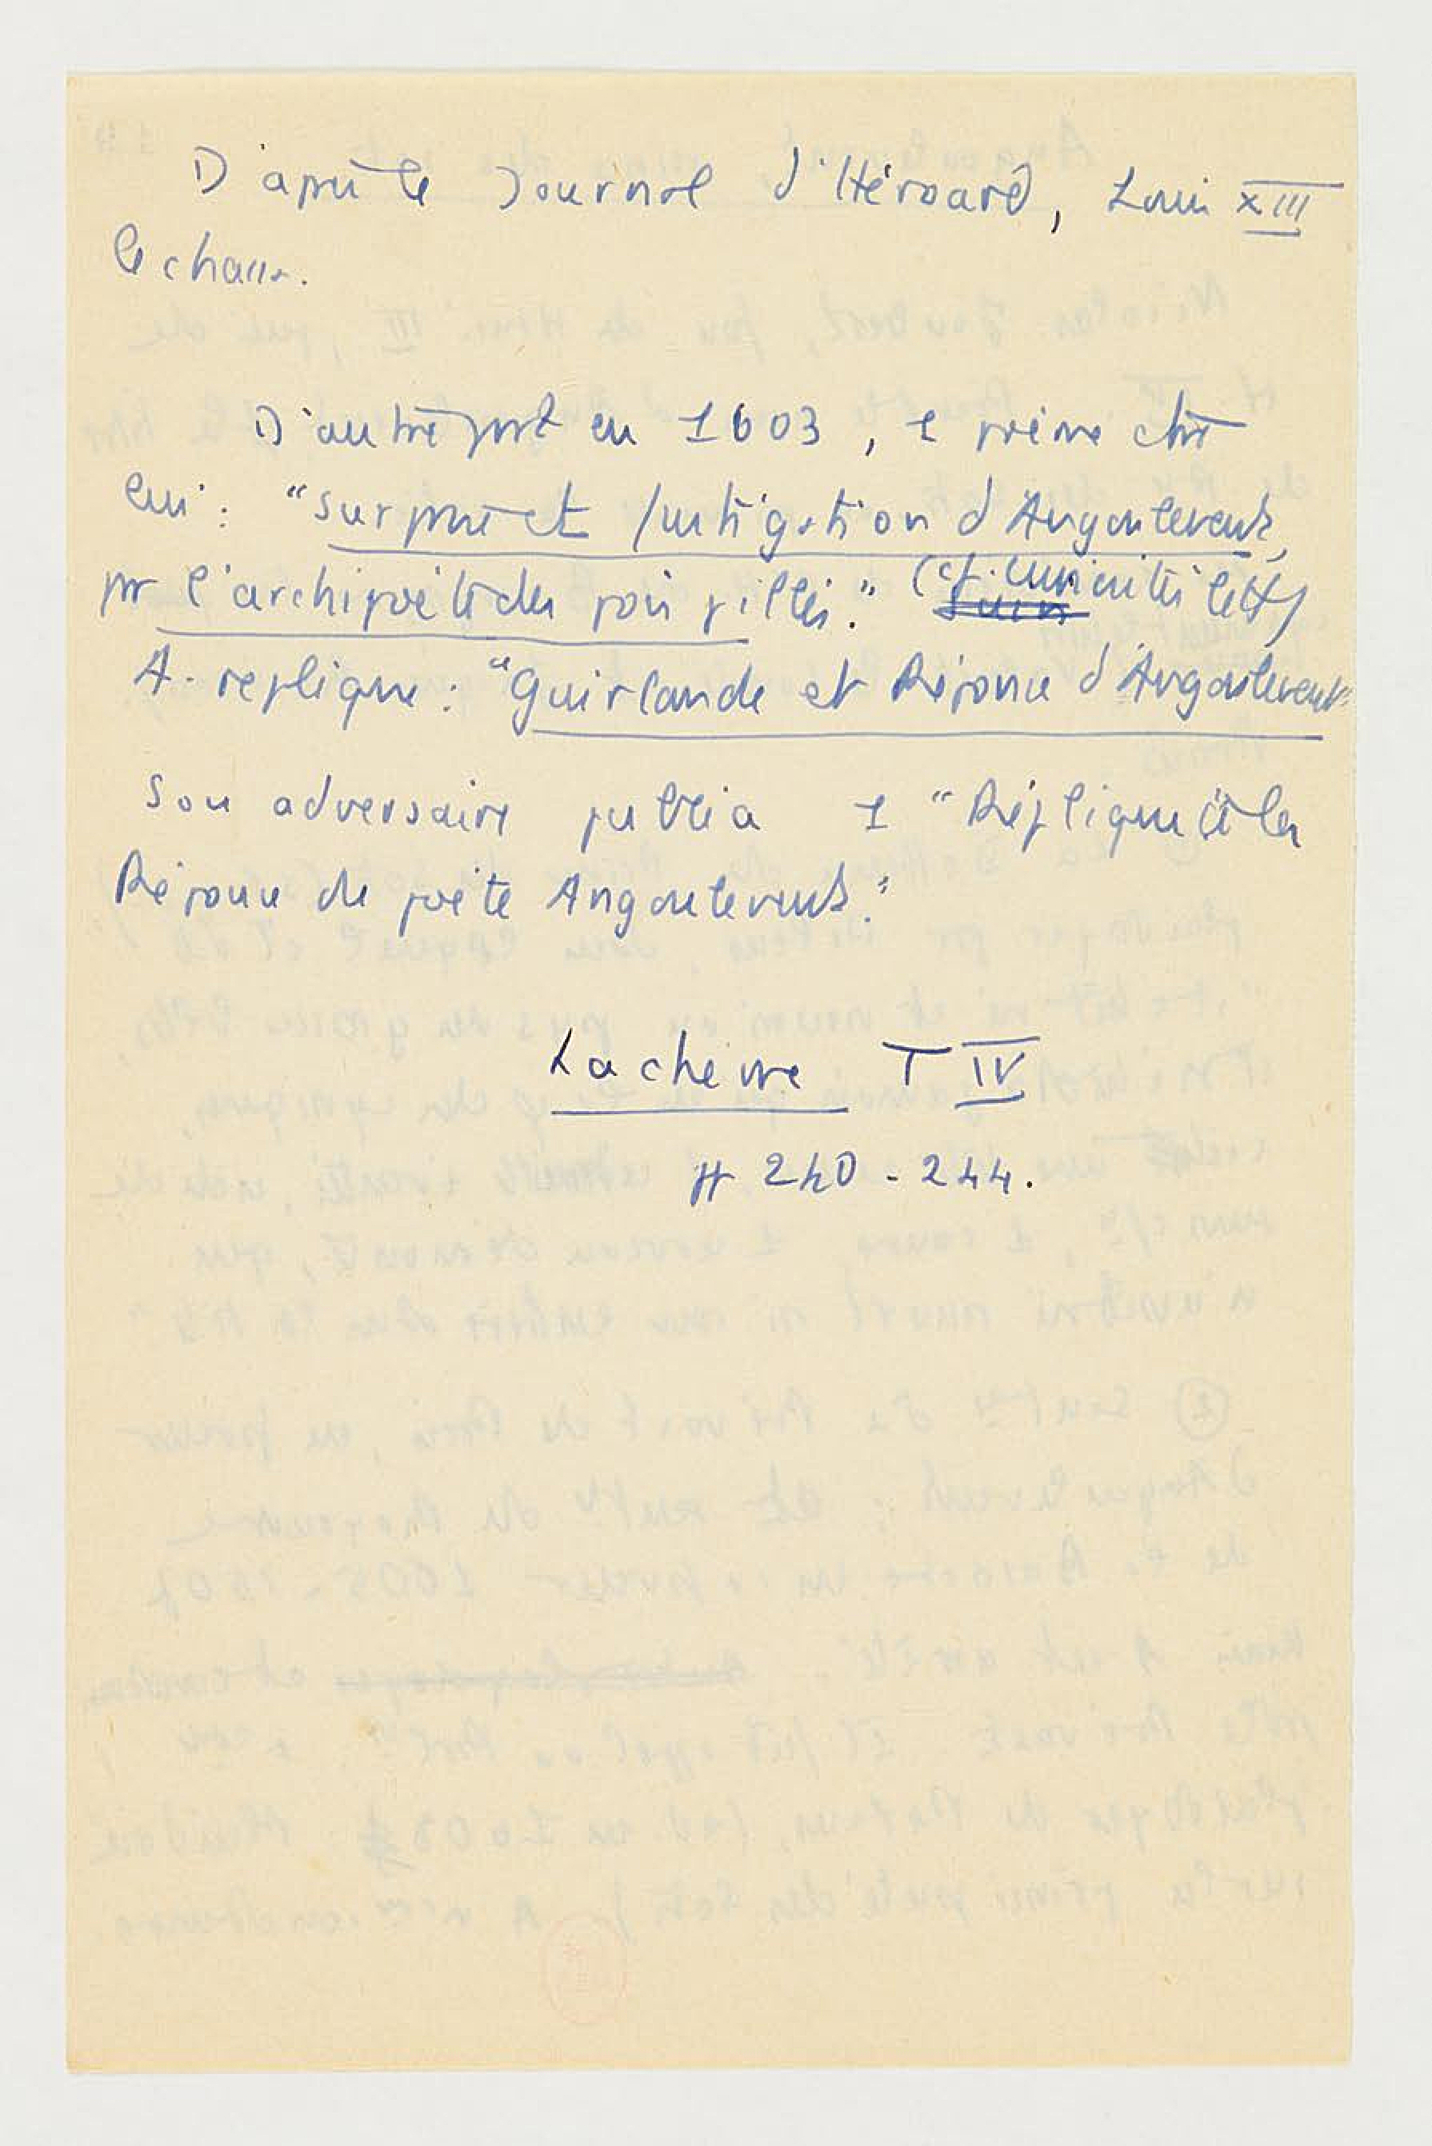 D'après le Journal d'Héroard, Louis XIII
le chasse.
D'autre part en 1603, 1 poème ctre
lui : "Surprise et fustigation d'Angoulevent,
pr l'archipoète des pois pillés." (cf. Curiosités litt)
A. replique : "Guirlande et Réponse d'Angoulevent"
Son adversaire publia 1 "Réplique à la
Réponse du poète Angoulevent."
Lachèvre T IV
pp 240-244.